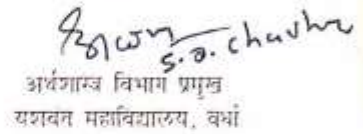 S.D. Chavhan
अर्थशास्त्र विभाग प्रमुख
यशवंत महाविद्यालय, वर्धा